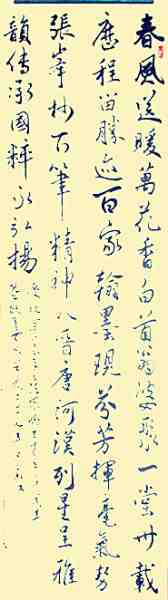 春風送暖萬花香白首翁婆聚一堂卅載
歷程留勝迹百家翰墨現芬芳揮毫氣勢
張峯林下筆精神入晉唐河漢列星呈雅
韻傳承國粹永弘揚